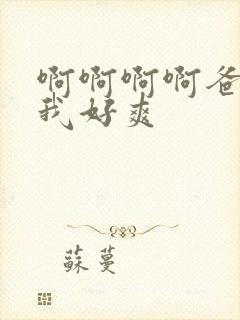 啊啊啊啊爸
我好爽
蘇蔓